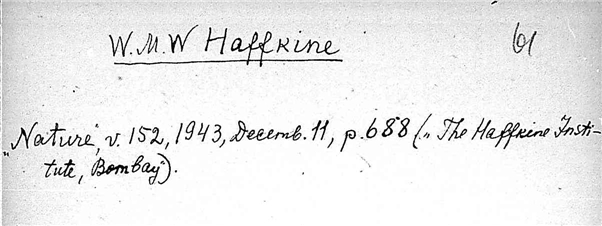 W.M.W Haffkine 61
„Nature", v. 152, 1943, Decemb. 11, p. 688 („The Haffkine Insti-
tute, Bombay").